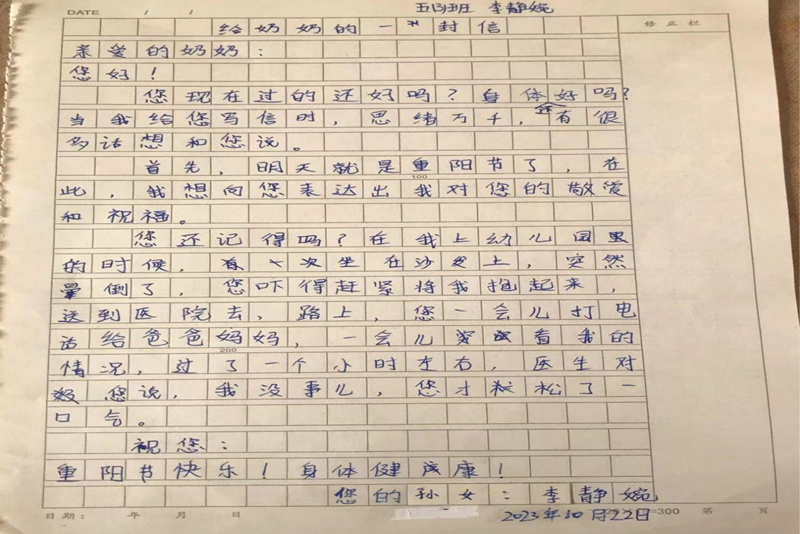 DATE / / 五(3)班 李静婉
给奶奶的一封信 修正栏
亲爱的奶奶:
您好!
您现在过的还好吗?身体好吗?
当我给您写信时,思绪万千,有很
多话想和您说。
首先,明天就是重阳节了,在
此,我想向您表达出我对您的敬爱
100
和祝福。
您还记得吗?在我上幼儿园里
的时候,有一次坐在沙发上,突然
晕倒了,您吓得赶紧将我抱起来,
送到医院去,路上,您一会儿打电
话给爸爸妈妈,一会儿看我的
200
情况,过了一个小时左右,医生对
您说,我没事儿,您才松了一
口气。
祝您:
重阳节快乐!身体健康!
您的孙女:李静婉
日期: 年 月 日 2023年10月22日 =300 第 页